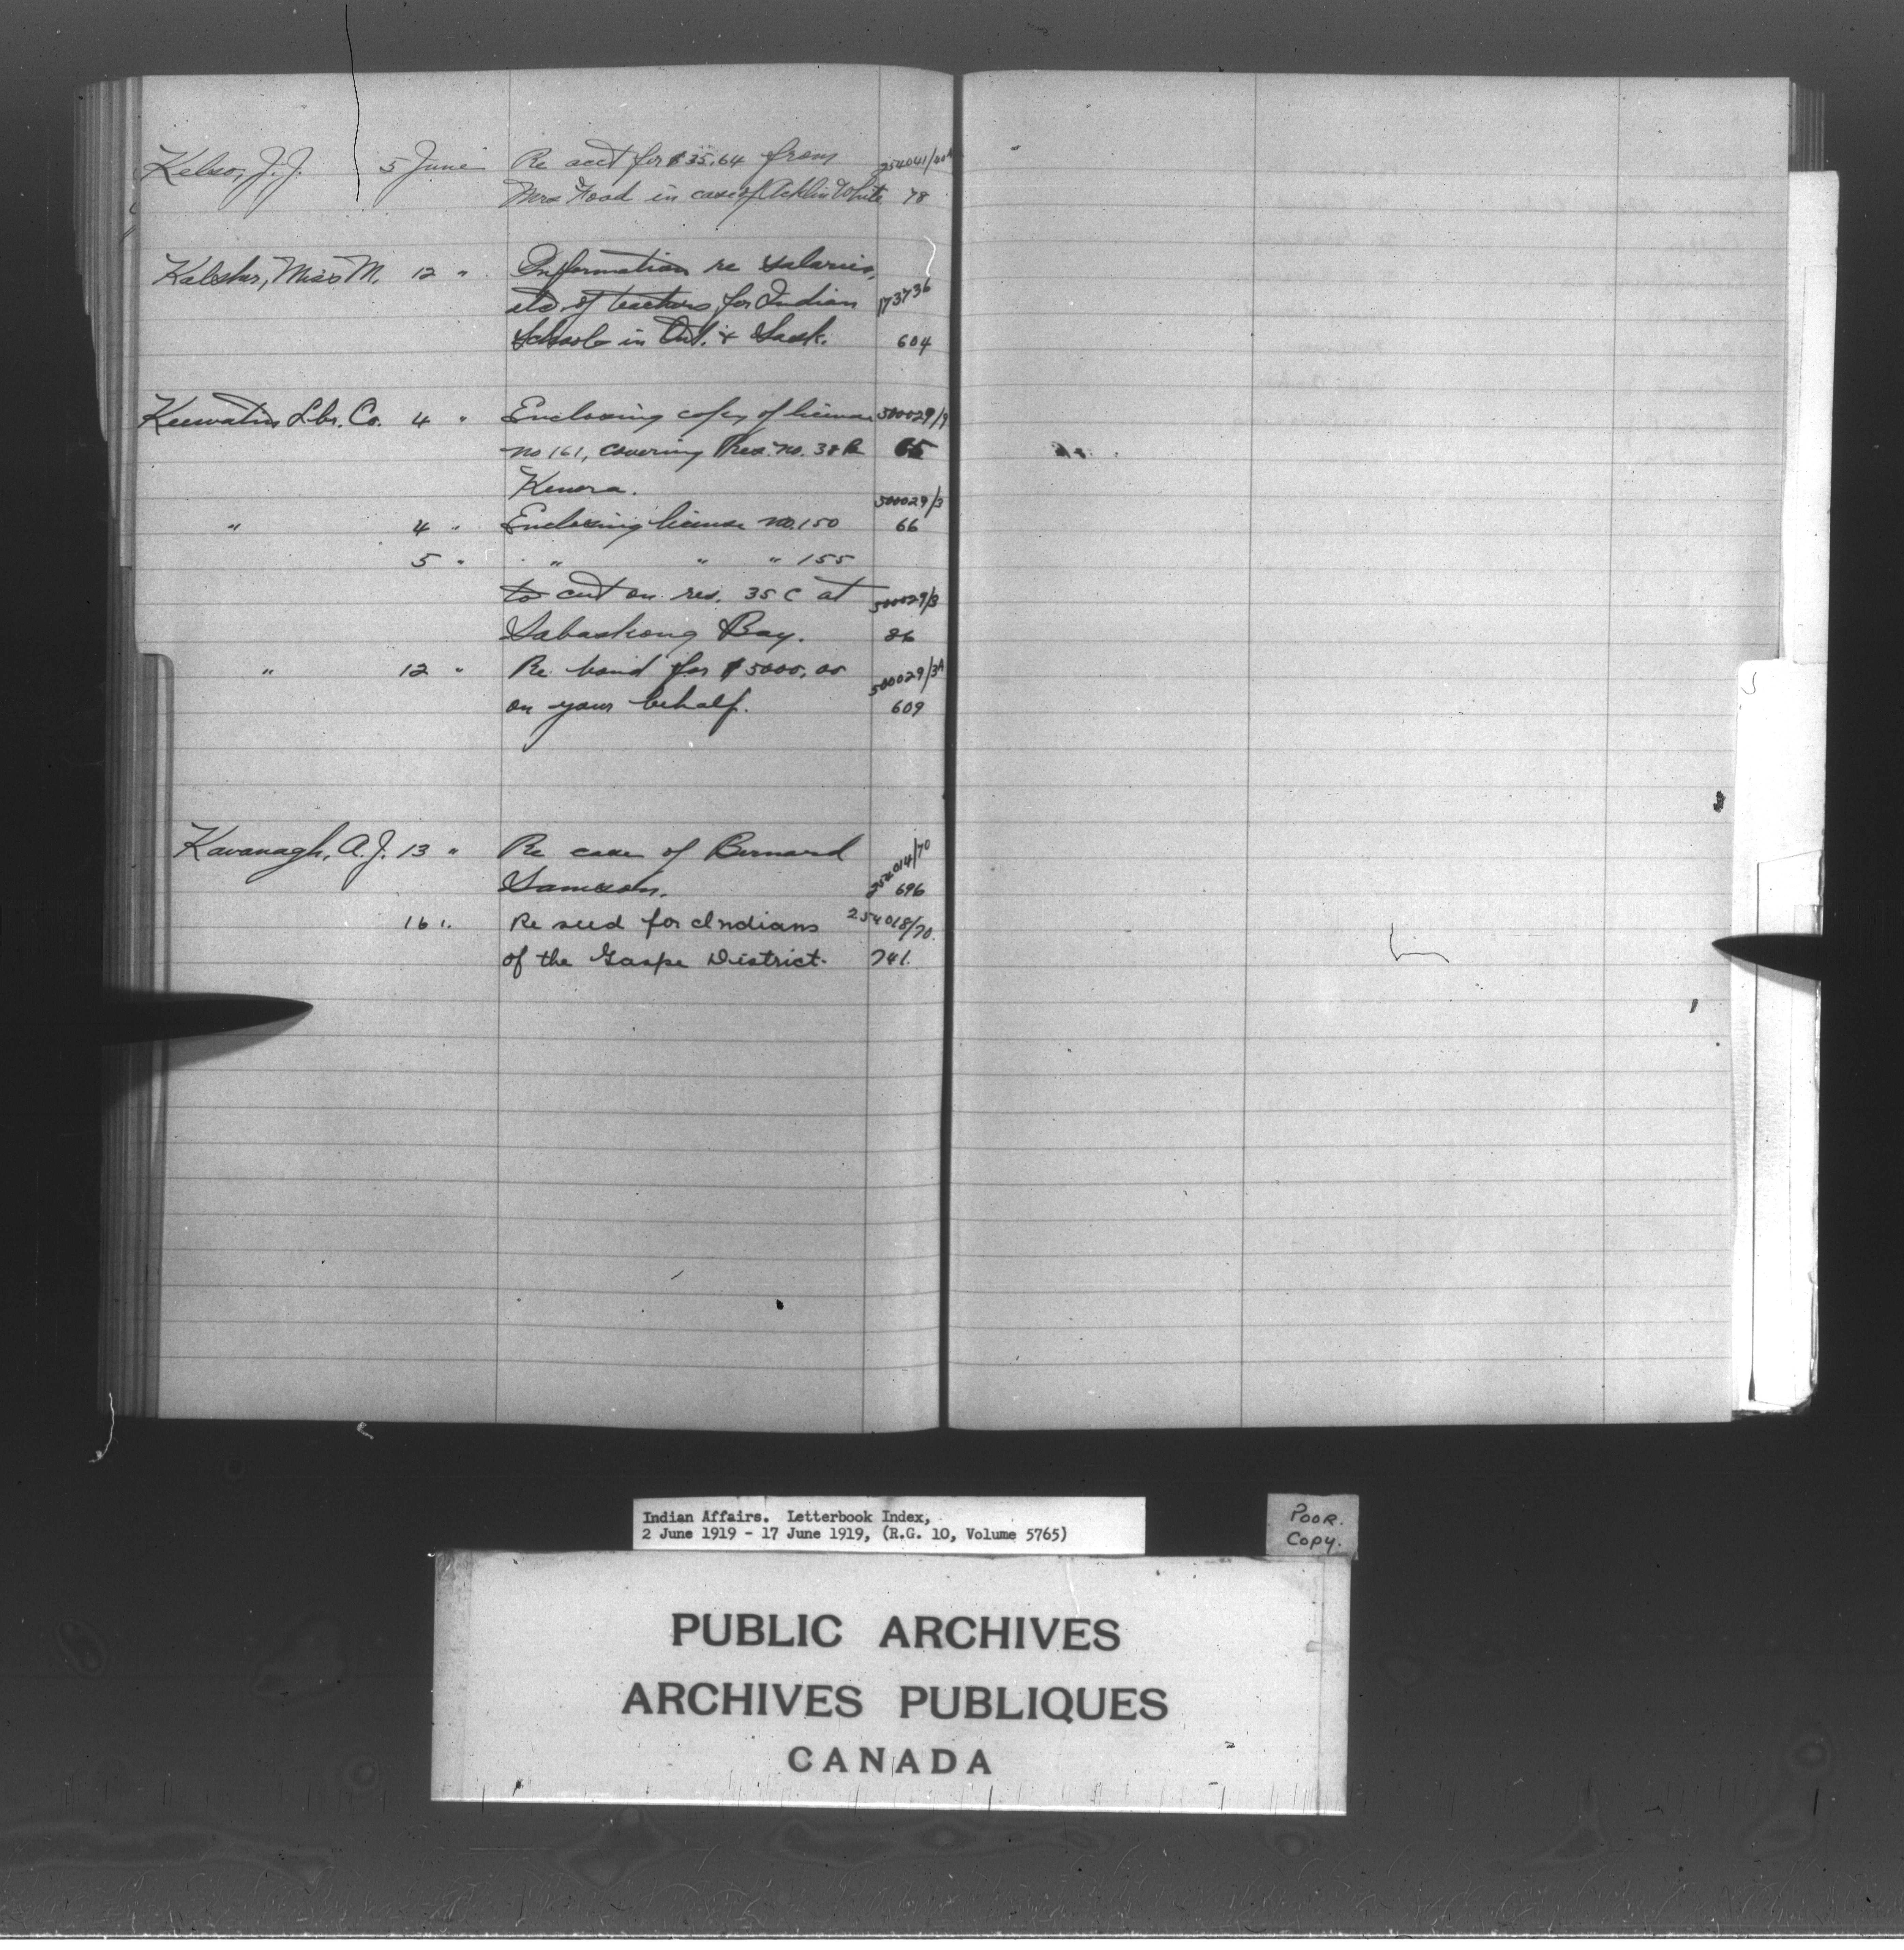 Kelso, J.J. 5 June Re acct for $35.64 from 254041/
Mrs Hood in case of Acklin White 78
Miss M. 12 " Information re salaries, 173736
etc of teachers for Indian
Schools in Ont. & Sask. 604
Keewatin Lbr. Co. 4 " Enclosing copy of license 500029/9
no 161, covering Res. no. 38 B 65
Kenora.
" 4 " Enclosing license no. 150 500029/3 66
5 " " " " 155
to cut on res. 35 C at 500029/3
Sabaskong Bay. 86
" 12 " Re bond for $5000.00 500029/3A
on your behalf. 609
Kavanagh, A.J. 13 " Re case of Bernard 254014/70
696
16 " Re seed for Indians 254018/70.
of the Gaspe District. 741.
Indian Affairs. Letterbook Index,
2 June 1919 - 17 June 1919, (R.G. 10, Volume 5765)
POOR.
COPY.
PUBLIC ARCHIVES
ARCHIVES PUBLIQUES
CANADA